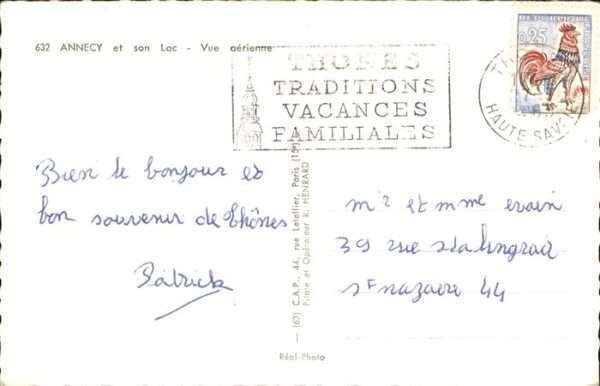 632 ANNECY et son Lac - Vue aérienne
THONES
TRADITIONS
VACANCES
FAMILIALES
0,25
TH
HAUTE SAVOIE
Bien le bonjour et
bon souvenir de Thônes
Patrick
(67) C.A.P., 44, rue Letellier, Paris (15e)
Pilote et Opérateur R. HENRARD
mr et mme evain
39 rue stalingrad
st nazaire 44
Réal-Photo